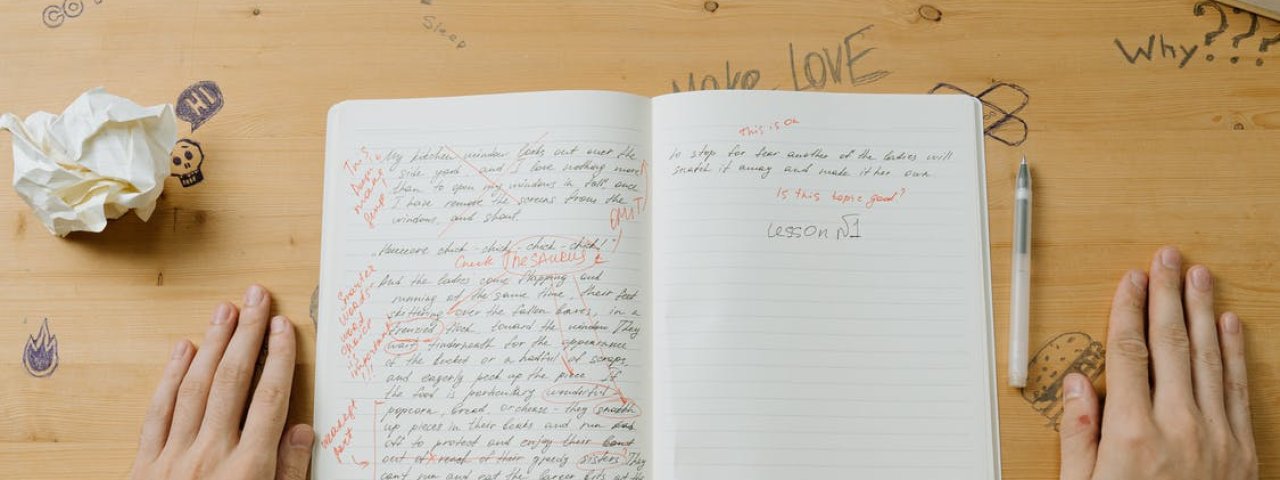 Sleep
MAKE LOVE
Why???
HI
this is on
My kitchen window looks out over the
side yard and I love nothing more
than to open my windows in fall once
I have remove the screens from the
windows, and shout
OMIT
chick-chick-chick-chick!"
Check THESAURUS
And the ladies come flapping and
running at the same time, their feet
skittering over the fallen leaves, in a
frenzied flock toward the window They
wait underneath for the appearance
of the bucket or a handful of scraps,
and eagerly peck up the piece If
the food is particulary wonderful
popcorn, bread, or cheese - they snatch
up pieces in their beaks and run
off to protect and enjoy their
out of reach of their greedy sisters They
can't run and eat the larger bits at the
Smarter
words-
word
choice
important
!!!
part
to stop for fear another of the ladies will
snatch it away and make it her own
Is this topic good?
Lesson №1